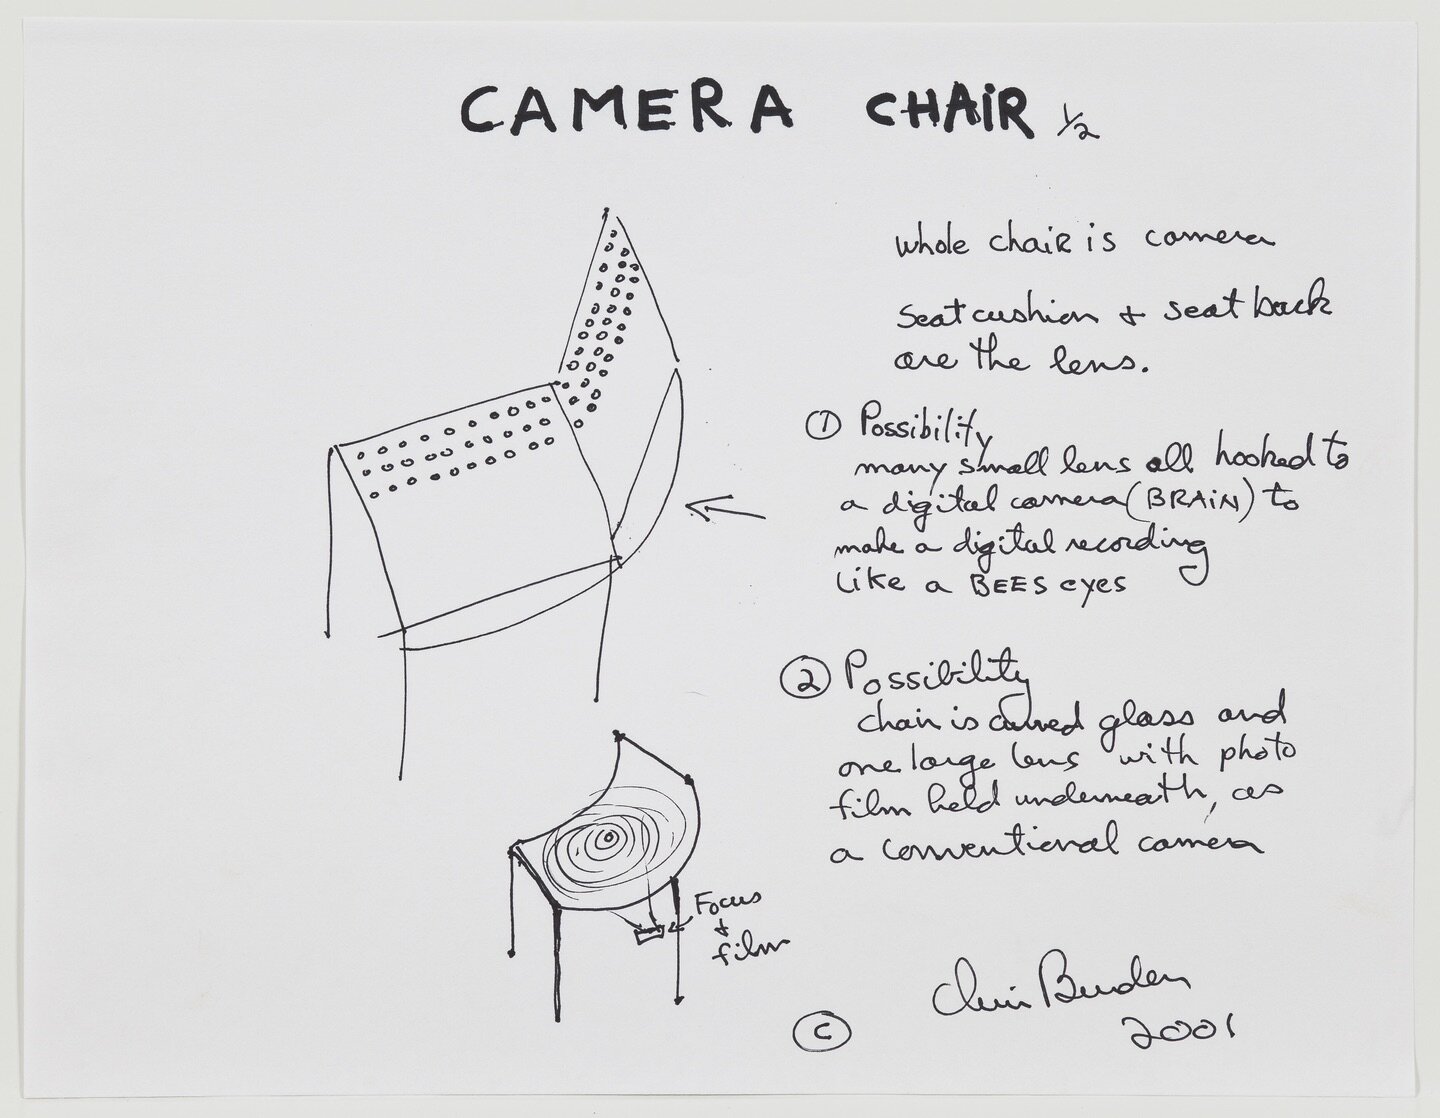 CAMERA CHAIR 1/2
whole chair is camera
seat cushion + seat back
are the lens.
① Possibility
many small lens all hooked to
a digital camera (BRAIN) to
make a digital recording
Like a BEES eyes
② Possibility
chair is curved glass and
one large lens with photo
film held underneath, as
a conventional camera
Focus
+
film
Chris Burden
© 2001